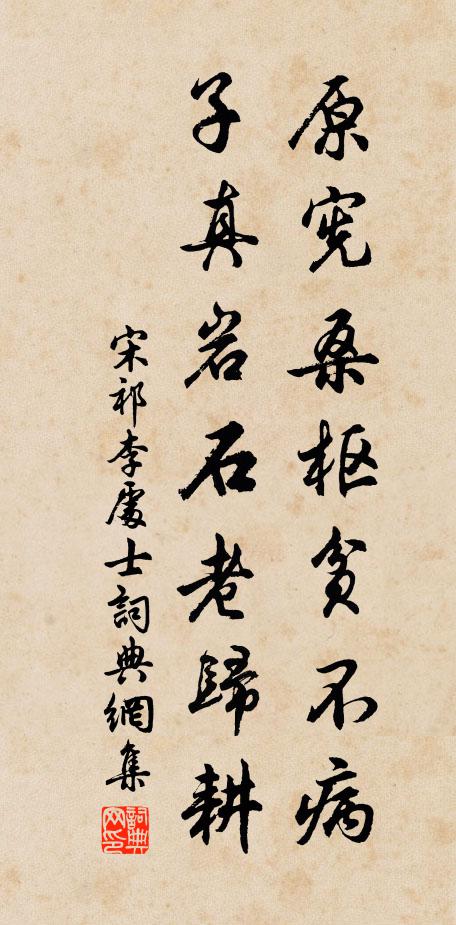 原宪桑枢贫不病
子真岩石老歸耕
宋祁李處士詞典網集
詞典
网印